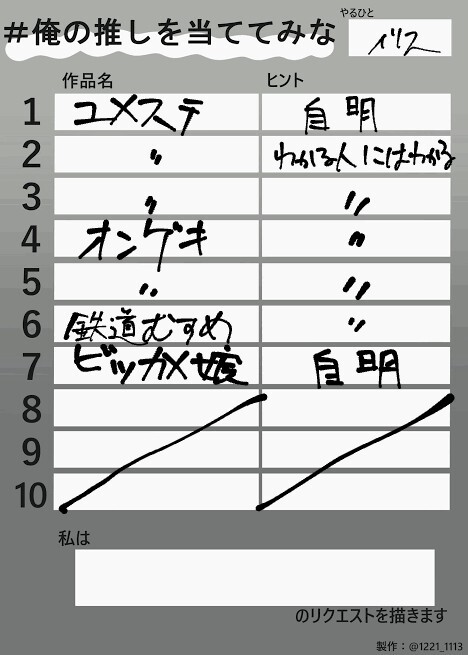 #俺の推しを当ててみな
やるひと
イリス
作品名 ヒント
1 ユメステ 自明
2 〃 わかる人にはわかる
3 〃 〃
4 オンゲキ 〃
5 〃 〃
6 鉄道むすめ 〃
7 ビッカメ娘 自明
8
9
10
私は
のリクエストを描きます
製作：@1221_1113